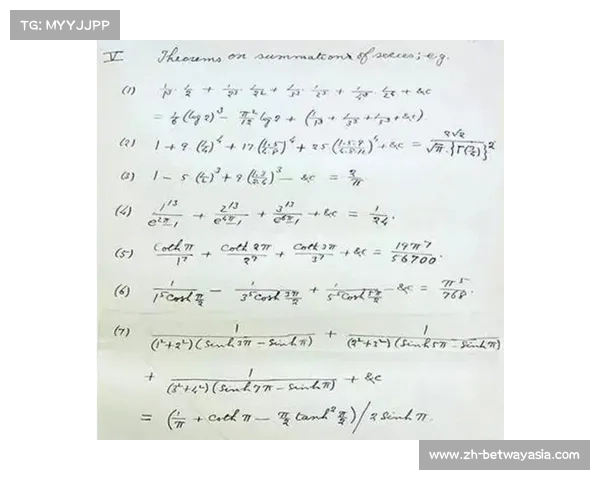 TG: MYYJJPP
V Theorems on summation of series; e.g.
(1) 1/1³ · 1/2 + 1/2³ · 1/2² + 1/3³ · 1/2³ + 1/4³ · 1/2⁴ + &c
= 1/6 (log 2)³ − π²/12 log 2 + (1/1³ + 1/3³ + 1/5³ + &c).
(2) 1 + 9 (1/4)⁴ + 17 (1·5/4·8)⁴ + 25 (1·5·9/4·8·12)⁴ + &c = 2√2/√π · {Γ(3/4)}²
(3) 1 − 5 (1/2)³ + 9 (1·3/2·4)³ − &c = 2/π
(4) 1¹³/e^2π−1 + 2¹³/e^4π−1 + 3¹³/e^6π−1 + &c = 1/24.
(5) Coth π/1⁷ + Coth 2π/2⁷ + Coth 3π/3⁷ + &c = 19π⁷/56700.
(6) 1/1⁵ Cosh π/2 − 1/3⁵ Cosh 3π/2 + 1/5⁵ Cosh 5π/2 − &c = π⁵/768.
(7) 1/(1²+2²)(Sinh 3π − Sinh π) + 1/(2²+3²)(Sinh 5π − Sinh π)
+ 1/(3²+4²)(Sinh 7π − Sinh π) + &c
= (1/π + Coth π − π/2 tanh² π/2) / 2 Sinh π.
www.zh-betwayasia.com